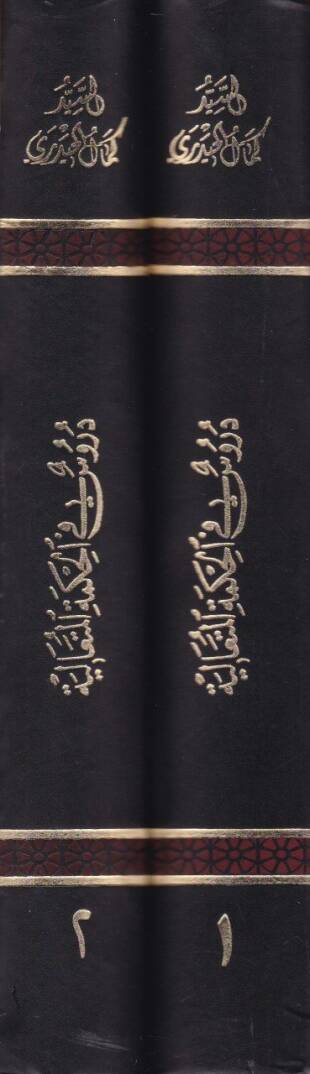 السَّيِّدُ
كَمَالُ الْحَيْدَرِي
دُرُوسٌ فِي الْحِكْمَةِ الْمُتَعَالِيَةِ
١
السَّيِّدُ
كَمَالُ الْحَيْدَرِي
دُرُوسٌ فِي الْحِكْمَةِ الْمُتَعَالِيَةِ
٢